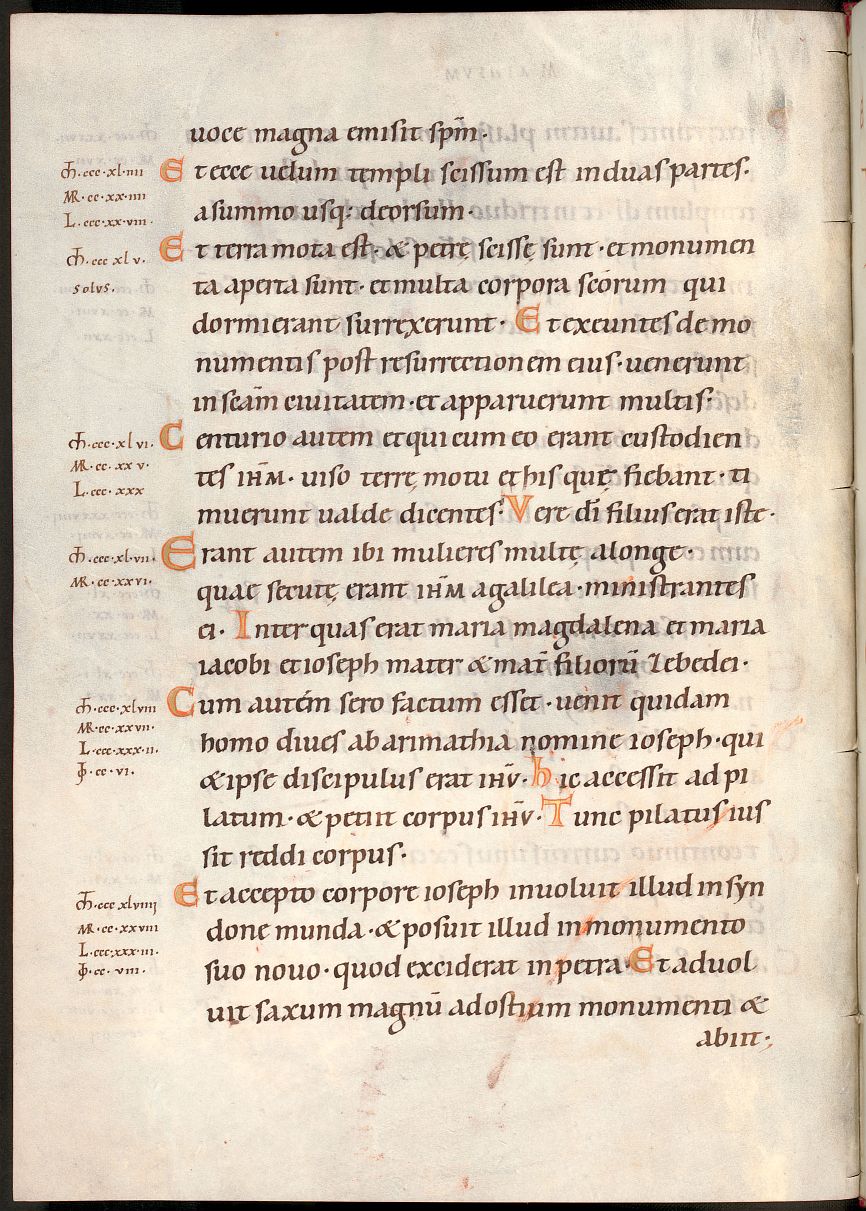 uoce magna emisit sp̄m·
Et ecce uelum templi scissum est induas partes·
M̄·ccc·xl·iiii
MR·cc·xx·iiii
L·ccc·xx·viii·
asummo usq; deorsum·
Et terra mota est· & petrę scissę sunt· et monumen
M̄·ccc xl v·
solvs·
ta aperta sunt· et multa corpora sc̄orum qui
dormierant surrexerunt· Et exeuntes de mo
numentis post resurrectionem eius· uenerunt
in sc̄am ciuitatem· et apparuerunt multis;
Centurio autem et qui cum eo erant custodien
M̄·ccc·xl vi·
MR·cc·xx v·
L·ccc·xxx
tes ih̄m· uiso terrę motu et his quę fiebant· ti
muerunt ualde dicentes; Vere dī filius erat iste·
Erant autem ibi mulieres multę alonge·
M̄·ccc·xl·vii·
MR·cc·xxvi·
quae secutę erant ih̄m agalilea· ministrantes
ei· Inter quas erat maria magdalena et maria
iacobi et ioseph mater & mat̄ filiorū Zebedei·
Cum autem sero factum esset· uenit quidam
M̄·ccc·xlviii
MR·cc·xxvii·
L·ccc·xxx·ii·
homo diues ab arimathia nomine ioseph· qui
& ipse discipulus erat ih̄v· hic accessit ad pi
latum· & petiit corpus ih̄v· Tunc pilatus ius
sit reddi corpus·
Et accepto corpore ioseph inuoluit illud in syn
M̄·ccc xlviiii
MR·cc·xxviii
L·ccc·xxx·iii·
done munda· & posuit illud in monumento
suo nouo· quod exciderat in petra· Et aduol
uit saxum magnū ad ostium monumenti &
abiit·